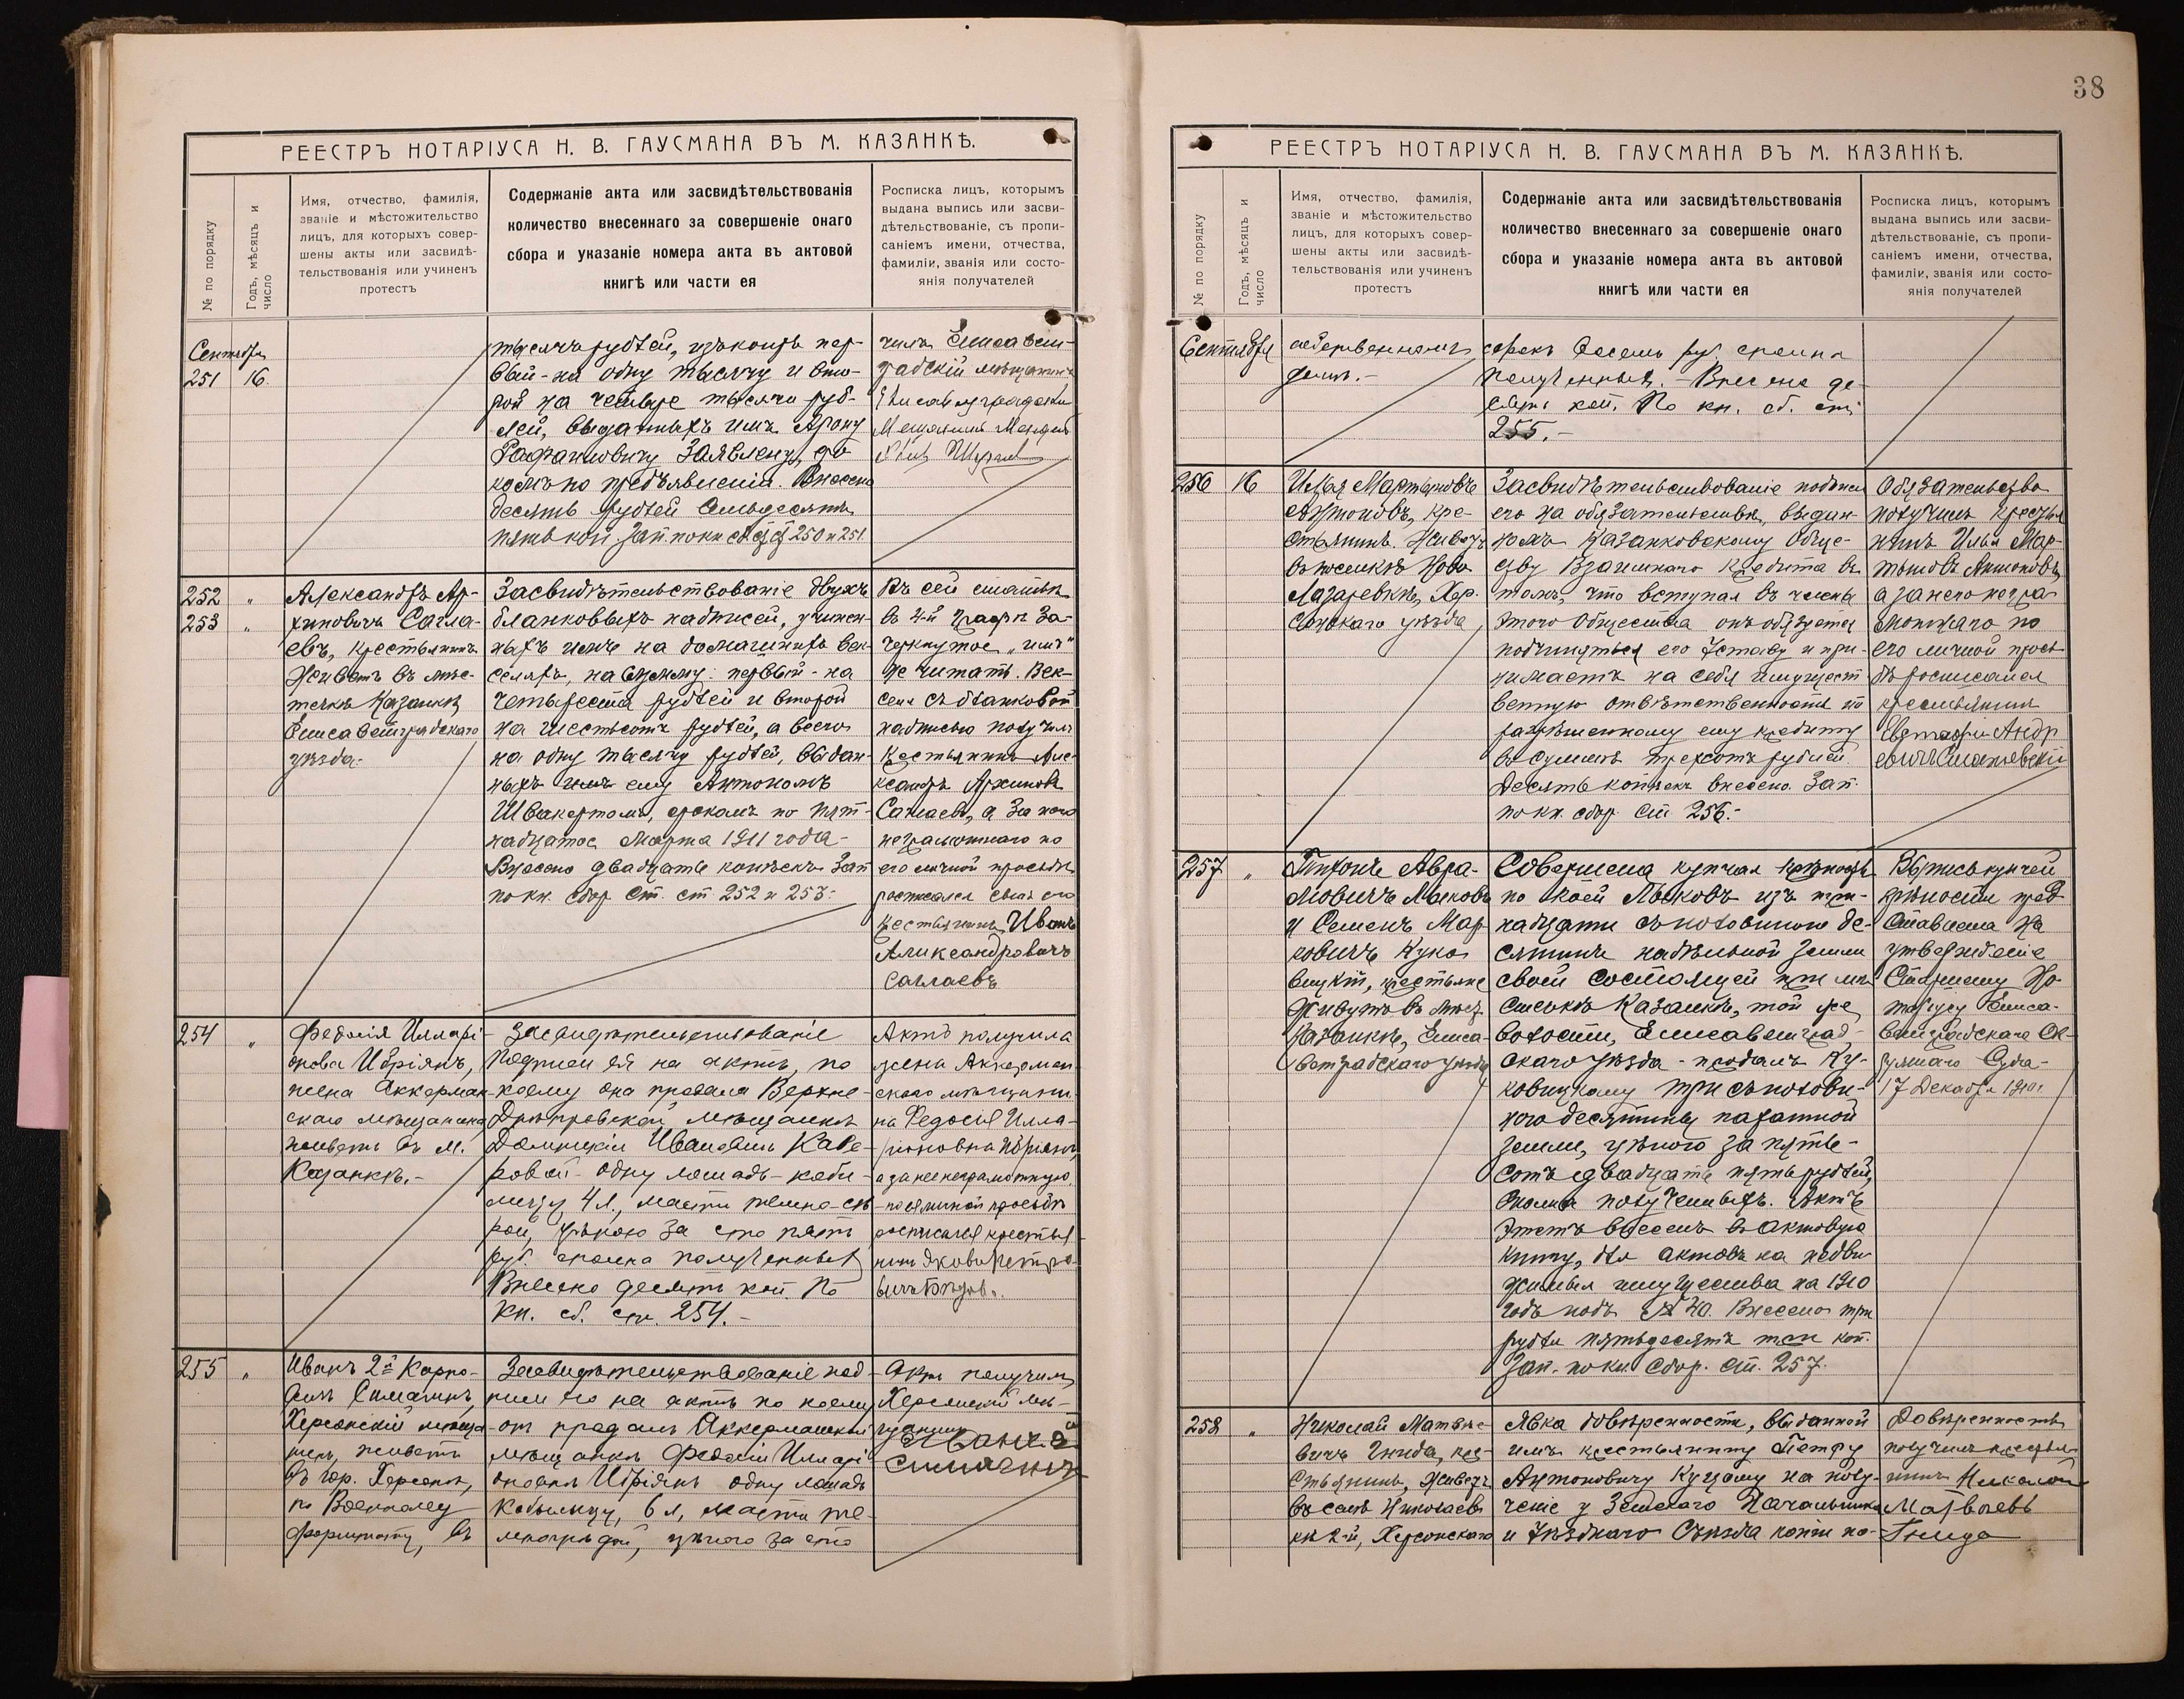 РЕЕСТРЪ НОТАРІУСА Н. В. ГАУСМАНА ВЪ М. КАЗАНКѢ.
№ по порядку
Годъ, мѣсяцъ и
число
Имя, отчество, фамилія,
званіе и мѣстожительство
лицъ, для которыхъ совер-
шены акты или засвидѣ-
тельствованія или учиненъ
протестъ
Содержаніе акта или засвидѣтельствованія
количество внесеннаго за совершеніе онаго
сбора и указаніе номера акта въ актовой
книгѣ или части ея
Росписка лицъ, которымъ
выдана выпись или засви-
дѣтельствованіе, съ пропи-
саніемъ имени, отчества,
фамиліи, званія или состо-
янія получателей
Сентября
251 16.
тысячъ рублей, изъ коихъ пер-
вый - на одну тысячу и вто-
рой на четыре тысячи руб-
лей, выданныхъ имъ Арону
сро-
комъ по предъявленіи. Внесено
десять рублей семьдесятъ
пять коп. Зап. по кн. сб. ст. 250 и 251.
чилъ Елисавет-
градскій мѣщанинъ
252 "
253 "
Александръ Ар-
хиповичъ Сагла-
евъ, крестьянинъ
Живетъ въ мѣс-
течкѣ Казанкѣ
Елисаветградскаго
уѣзда.
Засвидѣтельствованіе двухъ
бланковыхъ надписей, учинен-
ныхъ имъ на домашнихъ век-
селяхъ, на сумму: первый - на
четыреста рублей и второй
на шестьсотъ рублей, а всего
на одну тысячу рублей, выдан-
ныхъ имъ ему Антономъ
Швакертомъ, срокомъ по пят-
надцатое Марта 1911 года -
Внесено двадцать копѣекъ. Зап.
по кн. сбор. ст. ст. 252 и 253.-
Въ сей статьѣ
въ 4-й графѣ за-
черкнутое „имъ"
не читать. Век-
селя съ бланковой
надписью получилъ
крестьянинъ Але-
ксандръ Архиповъ
Саглаевъ, а за него
неграмотнаго по
его личной просьбѣ
росписался сынъ его
крестьянинъ Иванъ
Александровичъ
Саглаевъ
254 "
Федосія Иларі-
онова Ибріянъ,
жена Аккерман-
скаго мѣщанина
живетъ въ м.
Казанкѣ.-
Засвидѣтельствованіе
подписи ея на актѣ, по
коему она продала Верхне-
Днѣпровской мѣщанкѣ
Ивановнѣ
одну лошадь - кобы-
лицу 4 л., масти темно-сѣ-
рой, цѣною за сто пять
руб. сполна полученныхъ
Внесено десять коп. По
кн. сб. ст. 254.-
Актъ получила
жена Аккерман-
скаго мѣщани-
на Федосія Илла-
ріоновна Ибріянъ,
а за нее неграмотную
по ея личной просьбѣ
росписался крестья-
нинъ Яковъ Петро-
вичъ
255 "
Иванъ 2й Карпо-
Херсонскій мѣща-
нинъ, живетъ
въ гор. Херсонѣ,
по Военному
форштату, въ
Засвидѣтельствованіе под-
писи его на актѣ по коему
онъ продалъ Аккерманской
мѣщанкѣ Федосіи Иларі-
оновнѣ Ибріянъ одну лошадь
кобылицу, 6 л, масти те-
мно цѣною за сто
Актъ получилъ
Херсонскій мѣ-
щанинъ
Иванъ 2
38
РЕЕСТРЪ НОТАРІУСА Н. В. ГАУСМАНА ВЪ М. КАЗАНКѢ.
№ по порядку
Годъ, мѣсяцъ и
число
Имя, отчество, фамилія,
званіе и мѣстожительство
лицъ, для которыхъ совер-
шены акты или засвидѣ-
тельствованія или учиненъ
протестъ
Содержаніе акта или засвидѣтельствованія
количество внесеннаго за совершеніе онаго
сбора и указаніе номера акта въ актовой
книгѣ или части ея
Росписка лицъ, которымъ
выдана выпись или засви-
дѣтельствованіе, съ пропи-
саніемъ имени, отчества,
фамиліи, званія или состо-
янія получателей
Сентября
собственномъ
домѣ.-
сорокъ восемь руб. сполна
полученныхъ. - Внесено де-
сять коп. По кн. сб. ст.
255.-
256 16
Илья Мартыновичъ
Антоновъ, кре-
стьянинъ. Живетъ
въ поселкѣ Ново
Лазаревкѣ, Хер-
сонскаго уѣзда
Засвидѣтельствованіе подписи
его на обязательствѣ, выдан-
номъ Казанковскому Обще-
ству Взаимнаго Кредита въ
томъ, что вступая въ члены
этого Общества онъ обязуется
подчиняться его Уставу и при-
нимаетъ на себя имущест-
венную отвѣтственность по
разрѣшенному ему кредиту
въ суммѣ трехсотъ рублей.
Десять копѣекъ внесено. Зап.
по кн. сбор. ст. 256.-
Обязательство
получилъ крестья-
нинъ Илья Мар-
тыновъ Антоновъ,
а за него негра-
мотнаго по
его личной прось-
бѣ росписался
крестьянинъ
Евстафій Андр
257 "
Тихонъ Авра-
мовичъ Лысковъ
и Семенъ Мар-
ковичъ Куко-
вицкій, крестьяне
Живутъ въ мѣст.
Казанкѣ, Елиса-
ветградскаго уѣзда
Совершена купчая крѣпость
по коей Лысковъ изъ три-
надцати съ половиною де-
сятинъ надѣльной земли
своей состоящей при мѣ-
стечкѣ Казанкѣ, той же
волости, Елисаветград-
скаго уѣзда - продалъ Ку-
ковицкому три съ полови-
ною десятины пахатной
земли, цѣною за пять-
сотъ двадцать пять рублей,
сполна полученныхъ. Актъ
этотъ внесенъ въ актовую
книгу, для актовъ на недви-
жимыя имущества на 1910
годъ подъ № 40. Внесено три
рубля пятьдесятъ три коп.
Зап. по кн. сбор. ст. 257.
Выпись купчей
крѣпости пред-
ставлена на
утвержденіе
Старшему Но-
таріусу Елиса-
ветградскаго Ок-
ружнаго Суда -
17 Декабря 1910 г.
258 "
Николай Матвѣе-
вичъ Гнида, кре-
стьянинъ, живетъ
въ селѣ Николаев-
кѣ 2й, Херсонскаго
Явка довѣренности, выданной
имъ крестьянину Петру
Антоновичу Куцому на полу-
ченіе у Земскаго Начальника
и Уѣзднаго Съѣзда копіи по-
Довѣренность
получилъ крестья-
нинъ Николай
Матвѣевъ
Гнида